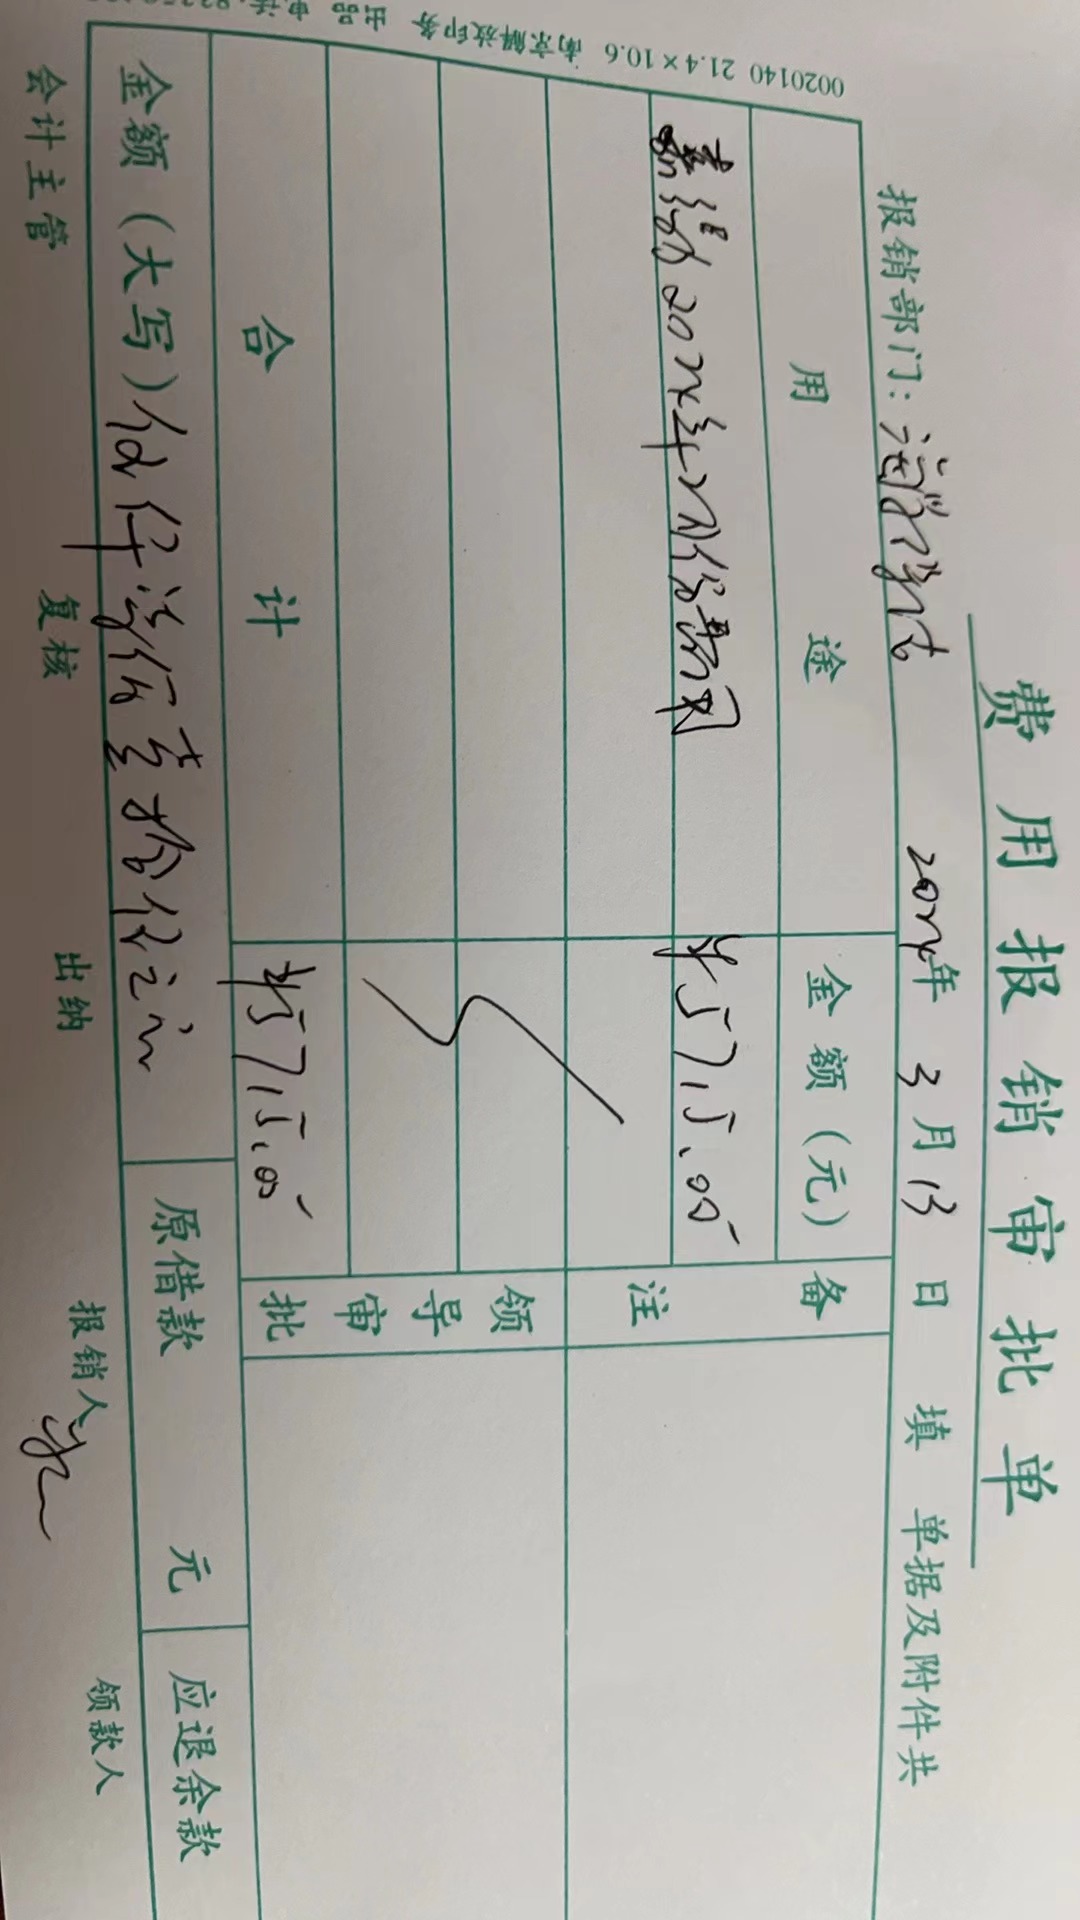 费用报销审批单
报销部门: 2024年 3月 13日 填 单据及附件共
用 途 金 额 (元) 备
2024年2月份费用 5715.00 注
领导审批
合 计 ¥5715.00
金额(大写) 伍仟柒佰壹拾伍元 原借款 元 应退余款
会计主管 复核 出纳 报销人 领款人
0020140 21.4×10.6 南京解放印务 出品